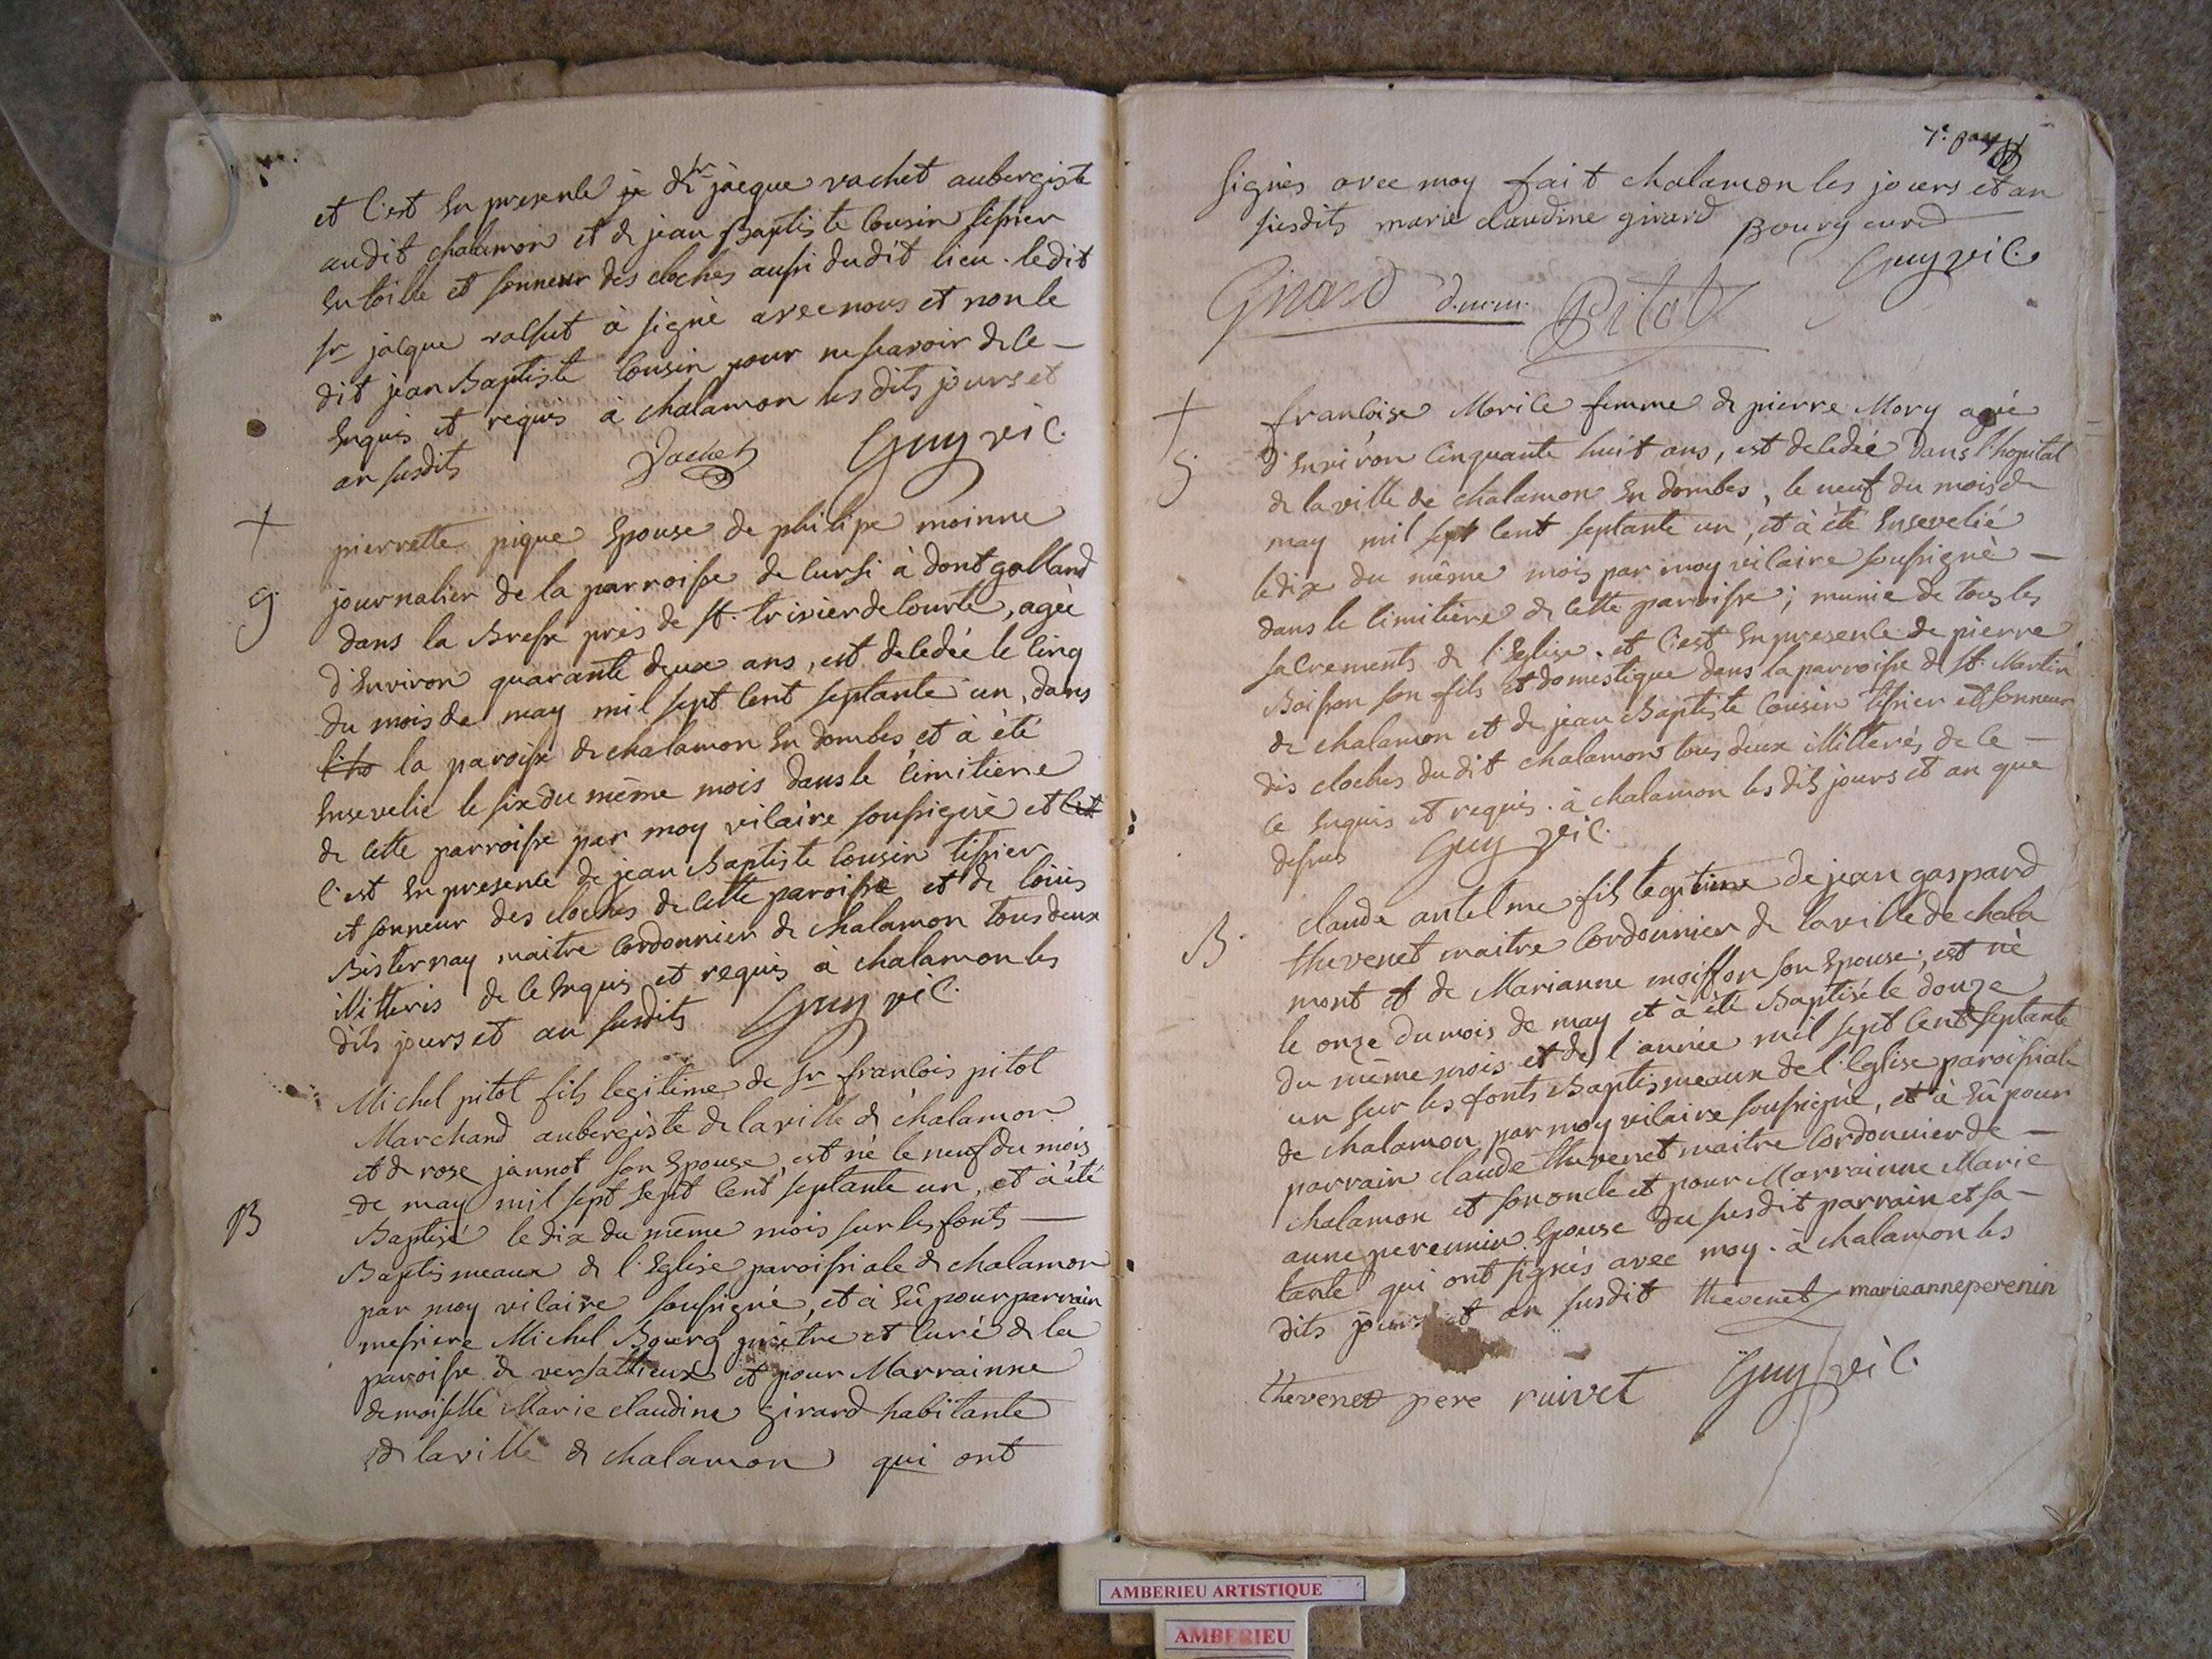 et c'est en presence je de sr jacque vachet aubergiste
audit chalamon et de jean Baptiste cousin tissier
en toille et sonneur des cloches aussi dudit lieu. ledit
sr jacque vachet à signé avec nous et non le
dit jean Baptiste cousin pour ne scavoir de ce —
enquis et requis à chalamon les dits jours et
an susdits Vachet Guy vic.
+ pierrette pique epouse de philipe moinne
journalier de la parroisse de cursi à dontgalland
g dans la Bresse près de st. trivier de courte, agèe
d'environ quarante deux ans, est decedèe le cinq
du mois de may mil sept cent septante un, dans
la paroisse de chalamon en dombes et à èté
ensevelie le six du même mois dans le cimitiere
de cette parroisse par moy vicaire soussignè et c'et
c'est en presence de jean Baptiste cousin tissier
et sonneur des cloches de cette paroisse et de louis
Bisternay maitre cordonnier de chalamon tous deux
illitteris de ce enquis et requis à chalamon les
dits jours et an susdits Guy vic.
Michel pitol fils legitime de sr francois pitol
Marchand aubergiste de la ville de chalamon
et de rose jannot son epouse, est nè le neuf du mois
de may mil sept sept cent septante un, et à èté
B Baptisé le dix du même mois sur les fonts —
Baptismeaux de l'Eglise paroissiale de chalamon
par moy vicaire soussigné, et à eû pour parrain
messiere Michel Bourg prêtre et curé de la
paroisse de versallieux et pour Marrainne
demoiselle Marie claudine Girard habitante
de la ville de chalamon qui ont
7e. page
signès avec moy fait chalamon les jours et an
susdits marie claudine girard Bourg curé
Guy vic.
Girard Pitol
+ francoise Morice femme de pierre Mory agèe
g d'environ cinquante huit ans, est decedèe dans l'hopital
de la ville de chalamon en dombes, le neuf du mois de
may mil sept cent septante un, et à èté ensevelié
le dix du même mois par moy vicaire soussignè —
dans le cimitière de cette parroisse; munie de tous les
sacrements de l'Eglise. et c'est en presence de pierre
Boisson son fils et domestique dans la parroisse de st. Martin
de chalamon et de jean Baptiste cousin tissier et sonneur
des cloches dudit chalamon tous deux illitterés de ce —
ce enquis et requis. à chalamon les dits jours et an que
dessus Guy vic.
B. claude antelme fils legitime de jean gaspard
thevenet maitre cordonnier de la ville de chala
mont et de Marianne moisson son epouse; est nè
le onze du mois de may et à èté Baptisé le douze
du même mois et de l'année mil sept cent septante
un sur les fonts Baptismeaux de l'Eglise paroissiale
de chalamon par moy vicaire soussigné, et à eû pour
parrain claude thevenet maitre cordonnier de —
chalamon et son oncle et pour Marrainne Marie
anne perennin epouse du susdit parrain et sa —
tante qui ont signès avec moy. à chalamon les
dits jours et an susdit thevenet marieanneperenin
thevenet pere ruivet Guy vic.
AMBERIEU ARTISTIQUE
AMBERIEU